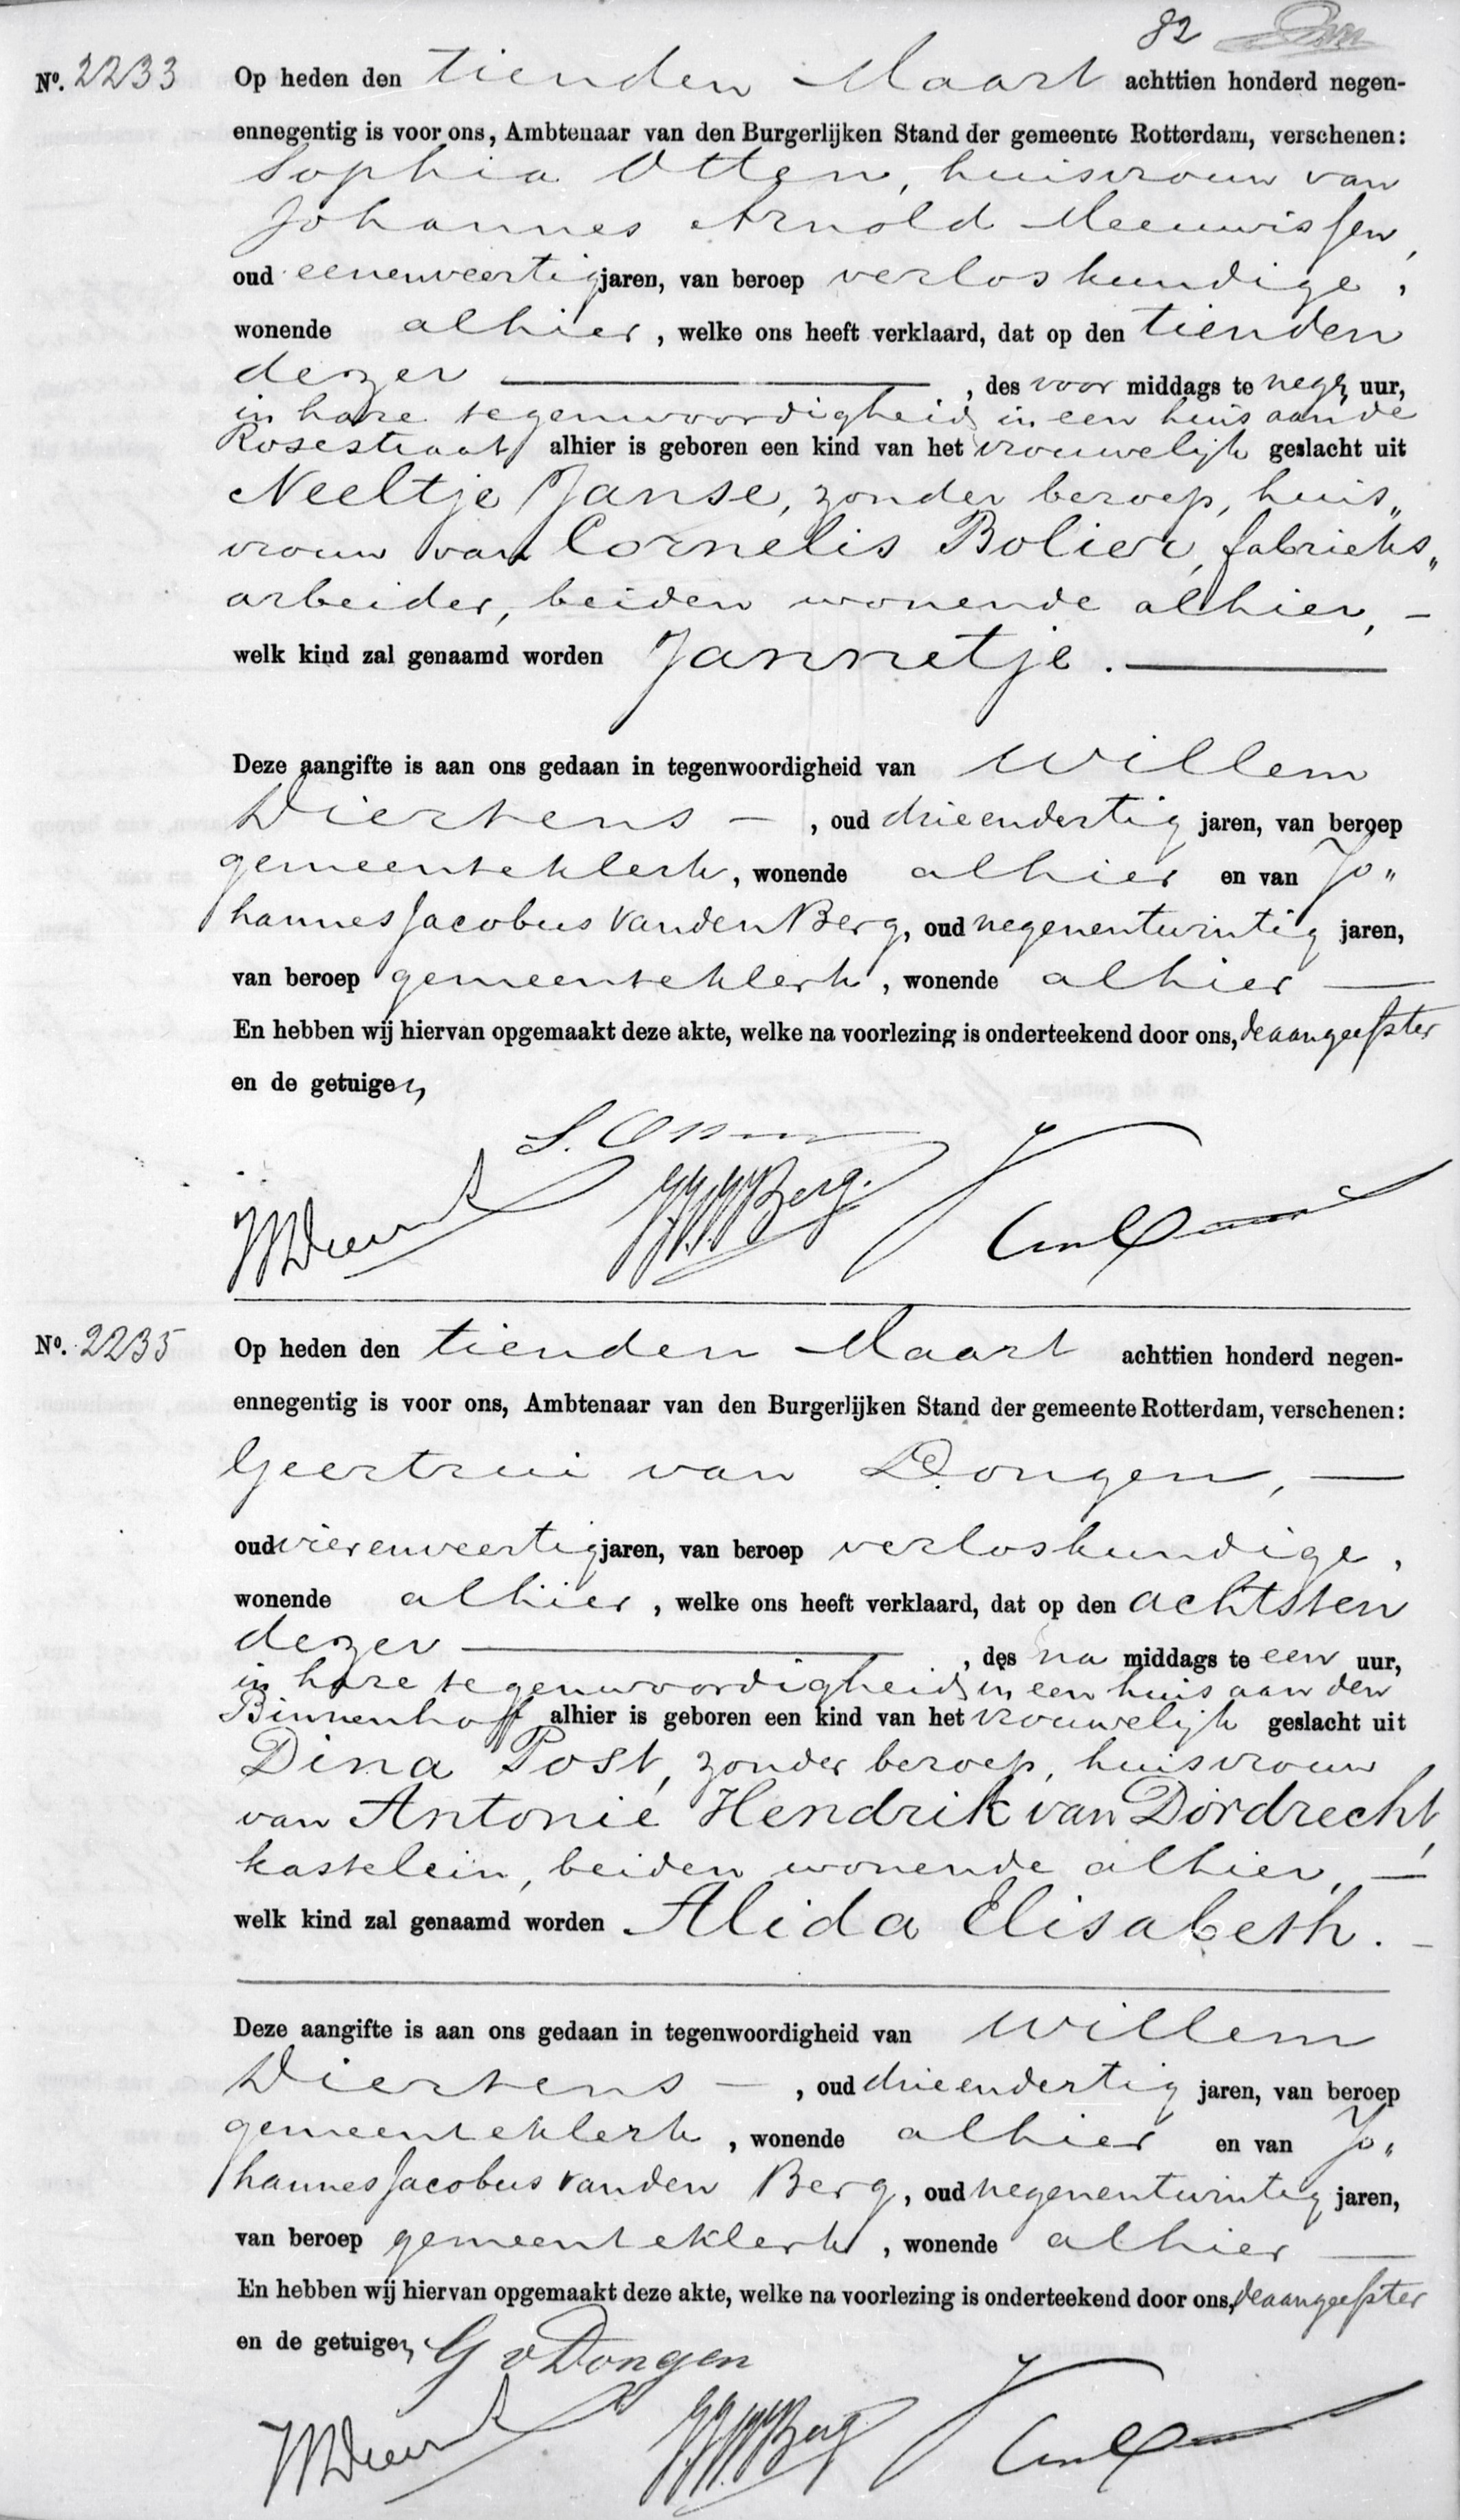 82
Nº. 2233 Op heden den tienden Maart achttien honderd negen-
ennegentig is voor ons, Ambtenaar van den Burgerlijken Stand der gemeente Rotterdam, verschenen:
Sophia Otten, huisvrouw van
Johannes Arnold Meeuwissen,
oud eenenveertig jaren, van beroep verloskundige,
wonende alhier, welke ons heeft verklaard, dat op den tienden
dezer , des voor middags te negen uur,
in hare tegenwoordigheid in een huis aan de
Rosestraat alhier is geboren een kind van het vrouwelijk geslacht uit
Neeltje Janse, zonder beroep, huis„
vrouw van Cornelis Bolier, fabrieks„
arbeider, beiden wonende alhier, —
welk kind zal genaamd worden Jannetje. —
Deze aangifte is aan ons gedaan in tegenwoordigheid van Willem
Diertens — , oud drieendertig jaren, van beroep
gemeenteklerk, wonende alhier en van Jo„
hannes Jacobus van den Berg, oud negenentwintig jaren,
van beroep gemeenteklerk, wonende alhier —
En hebben wij hiervan opgemaakt deze akte, welke na voorlezing is onderteekend door ons, de aangeefster
en de getuigen
S. Otten
JJvdBerg.
Nº. 2235 Op heden den tienden Maart achttien honderd negen-
ennegentig is voor ons, Ambtenaar van den Burgerlijken Stand der gemeente Rotterdam, verschenen:
Geertrui van Dongen, —
oud vierenveertig jaren, van beroep verloskundige,
wonende alhier, welke ons heeft verklaard, dat op den achtsten
dezer — , des na middags te een uur,
in hare tegenwoordigheid in een huis aan den
Binnenhoff alhier is geboren een kind van het vrouwelijk geslacht uit
Dina Post, zonder beroep, huisvrouw
van Antonie Hendrik van Dordrecht,
kastelein, beiden wonende alhier, —
welk kind zal genaamd worden Alida Elisabeth. —
Deze aangifte is aan ons gedaan in tegenwoordigheid van Willem
Diertens — , oud drieendertig jaren, van beroep
gemeenteklerk, wonende alhier en van Jo„
hannes Jacobus van den Berg, oud negenentwintig jaren,
van beroep gemeenteklerk, wonende alhier —
En hebben wij hiervan opgemaakt deze akte, welke na voorlezing is onderteekend door ons, de aangeefster
en de getuigen
G v Dongen
JJvdBerg